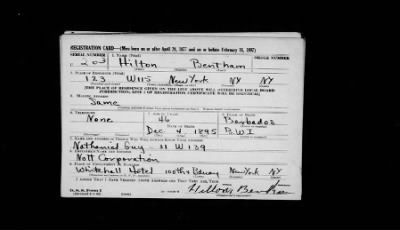 REGISTRATION CARD—(Men born on or after April 28, 1877 and on or before February 16, 1897)
SERIAL NUMBER 1. NAME (Print) ORDER NUMBER
203 Hilton Bentham
2. PLACE OF RESIDENCE (Print)
123 W 115 New York NY NY
[THE PLACE OF RESIDENCE GIVEN ON THE LINE ABOVE WILL DETERMINE LOCAL BOARD
JURISDICTION; LINE 2 OF REGISTRATION CERTIFICATE WILL BE IDENTICAL]
3. MAILING ADDRESS
Same
4. TELEPHONE 5. AGE IN YEARS 6. PLACE OF BIRTH
None 46 Barbados
DATE OF BIRTH
Dec 4 1895 B.W.I
7. NAME AND ADDRESS OF PERSON WHO WILL ALWAYS KNOW YOUR ADDRESS
Nathaniel Guy 11 W 139
8. EMPLOYER'S NAME AND ADDRESS
Nott Corporation
9. PLACE OF EMPLOYMENT OR BUSINESS
Whitehall Hotel 100th & New York NY
I AFFIRM THAT I HAVE VERIFIED ABOVE ANSWERS AND THAT THEY ARE TRUE.
D. S. S. Form 1
Hilton